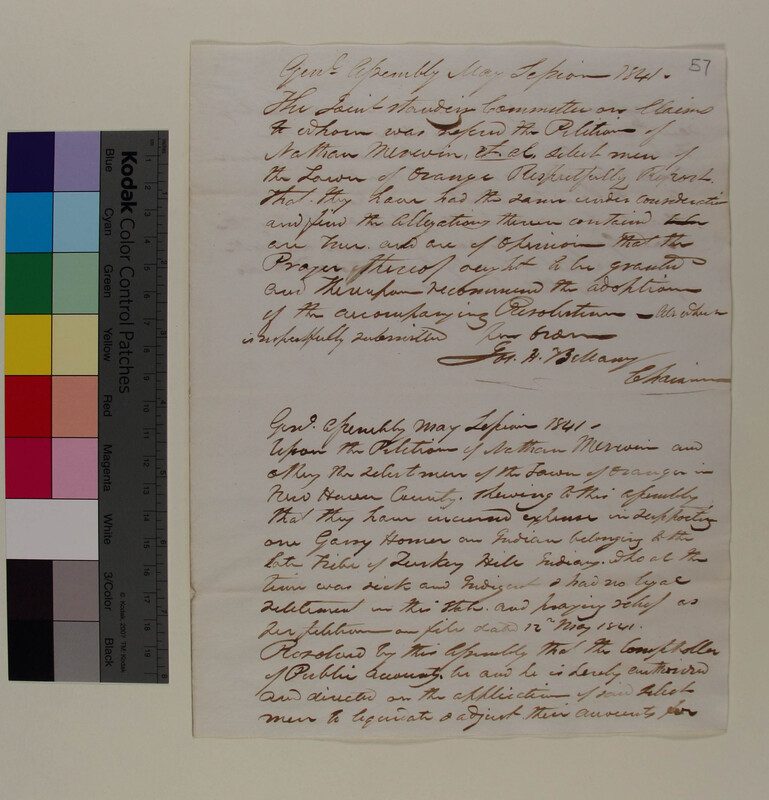 57
Genl. Assembly May Session 1841.
The Joint standing Committee on Claims
to whom was refered the Petition of
Nathan Merwin, et al, select men of
the Town of Orange Respectfully Report
that they have had the same under consideration
and find the allegations therein contained
are true. and are of opinion that the
Prayer thereof ought to be granted
and thereupon recommend the adoption
of the accompanying Resolution – All which
is respectfully submitted Per order
Jos. H. Bellamy
Chairman
Genl. Assembly May Session 1841.
Upon the Petition of Nathan Merwin and
others the select men of the Town of Orange in
New Haven County. shewing to this Assembly
that they have incurred expense in supporting
one Garry Homer an Indian belonging to the
late tribe of Turkey Hill Indians. who at the
time was sick and indigent & had no legal
settlement in this State. and praying relief as
per petition on file dated 12th May 1841.
Resolved by this Assembly that the Comptroller
of Public Accounts be and he is hereby authorized
and directed on the application of said select
men to liquidate & adjust their accounts for
Kodak Color Control Patches
Blue
Cyan
Green
Yellow
Red
Magenta
White
3/Color
Black
© Kodak, 2007 TM: Kodak